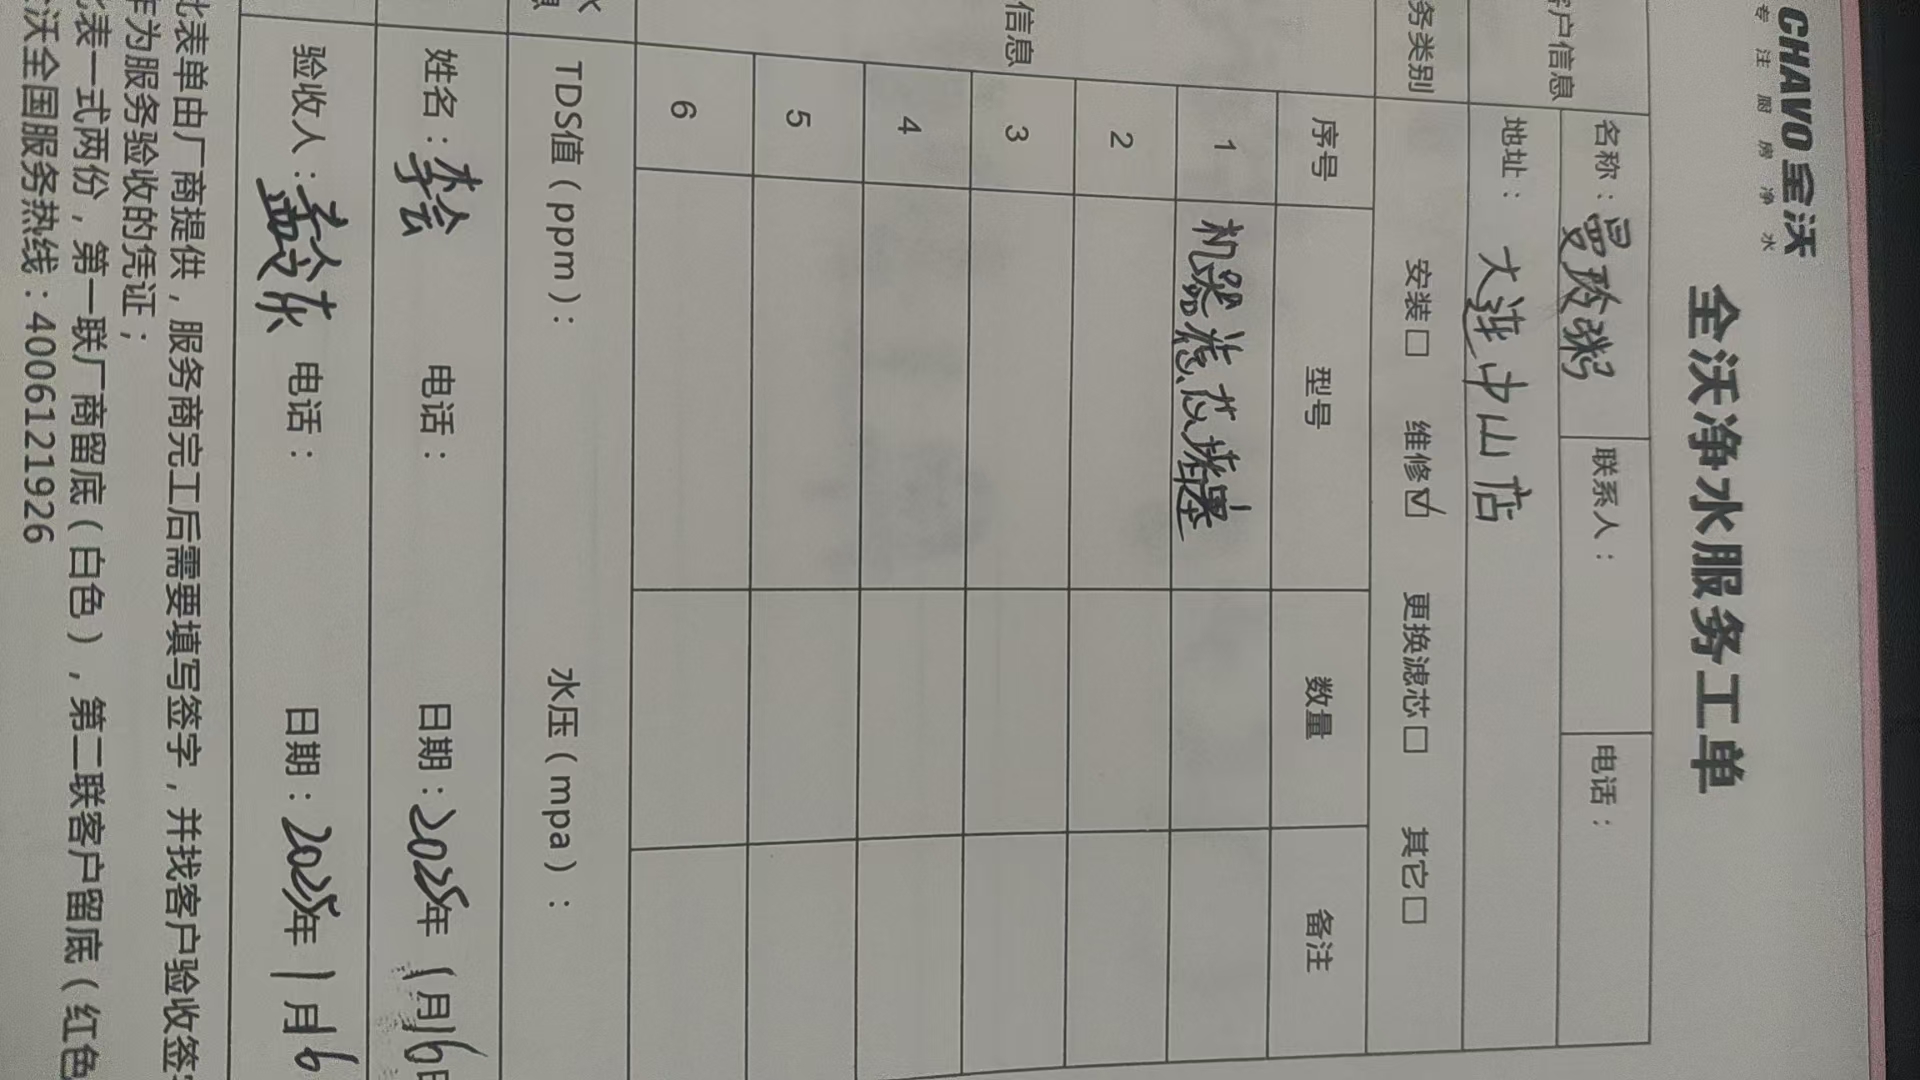 CHAVO 全沃
专注厨房净水
全沃净水服务工单
客户信息 名称：曼玲粥 联系人： 电话：
地址：大连中山店
务类别 安装□ 维修☑ 更换滤芯□ 其它□
信息 序号 型号 数量 备注
1 机器滤芯堵塞
2
3
4
5
6
TDS值（ppm）： 水压（mpa）：
姓名： 电话： 日期：2025年1月16日
验收人： 电话： 日期：2025年1月16
此表单由厂商提供，服务商完工后需要填写签字，并找客户验收签
作为服务验收的凭证；
此表一式两份，第一联厂商留底（白色），第二联客户留底（红色
全沃全国服务热线：4006121926